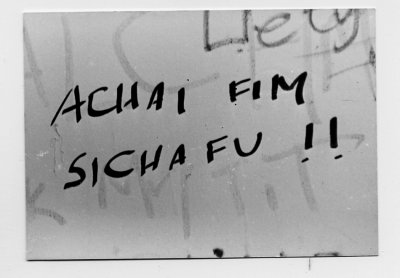 ACHAI FIM
SICHAFU !!